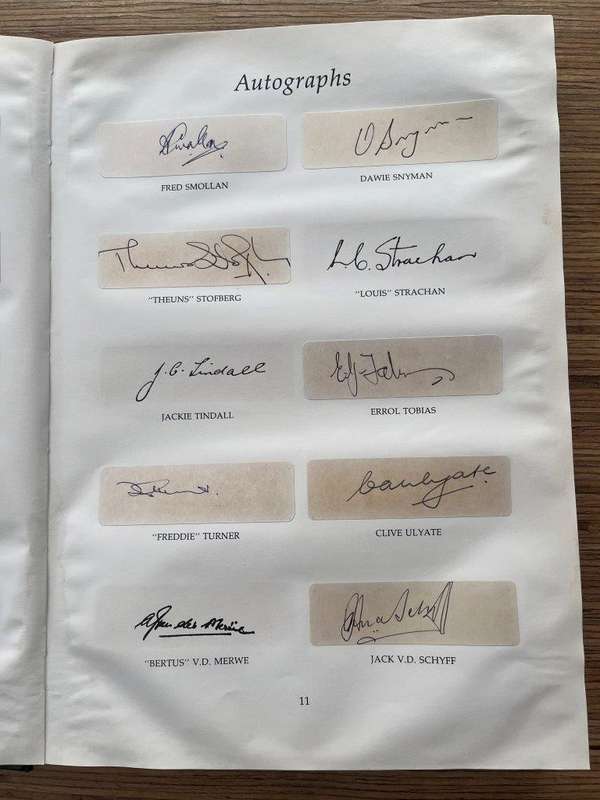 Autographs
FRED SMOLLAN
D Snyman
DAWIE SNYMAN
"THEUNS" STOFBERG
L.C. Strachan
"LOUIS" STRACHAN
J.C. Tindall
JACKIE TINDALL
ERROL TOBIAS
"FREDDIE" TURNER
CLIVE ULYATE
"BERTUS" V.D. MERWE
JACK V.D. SCHYFF
11